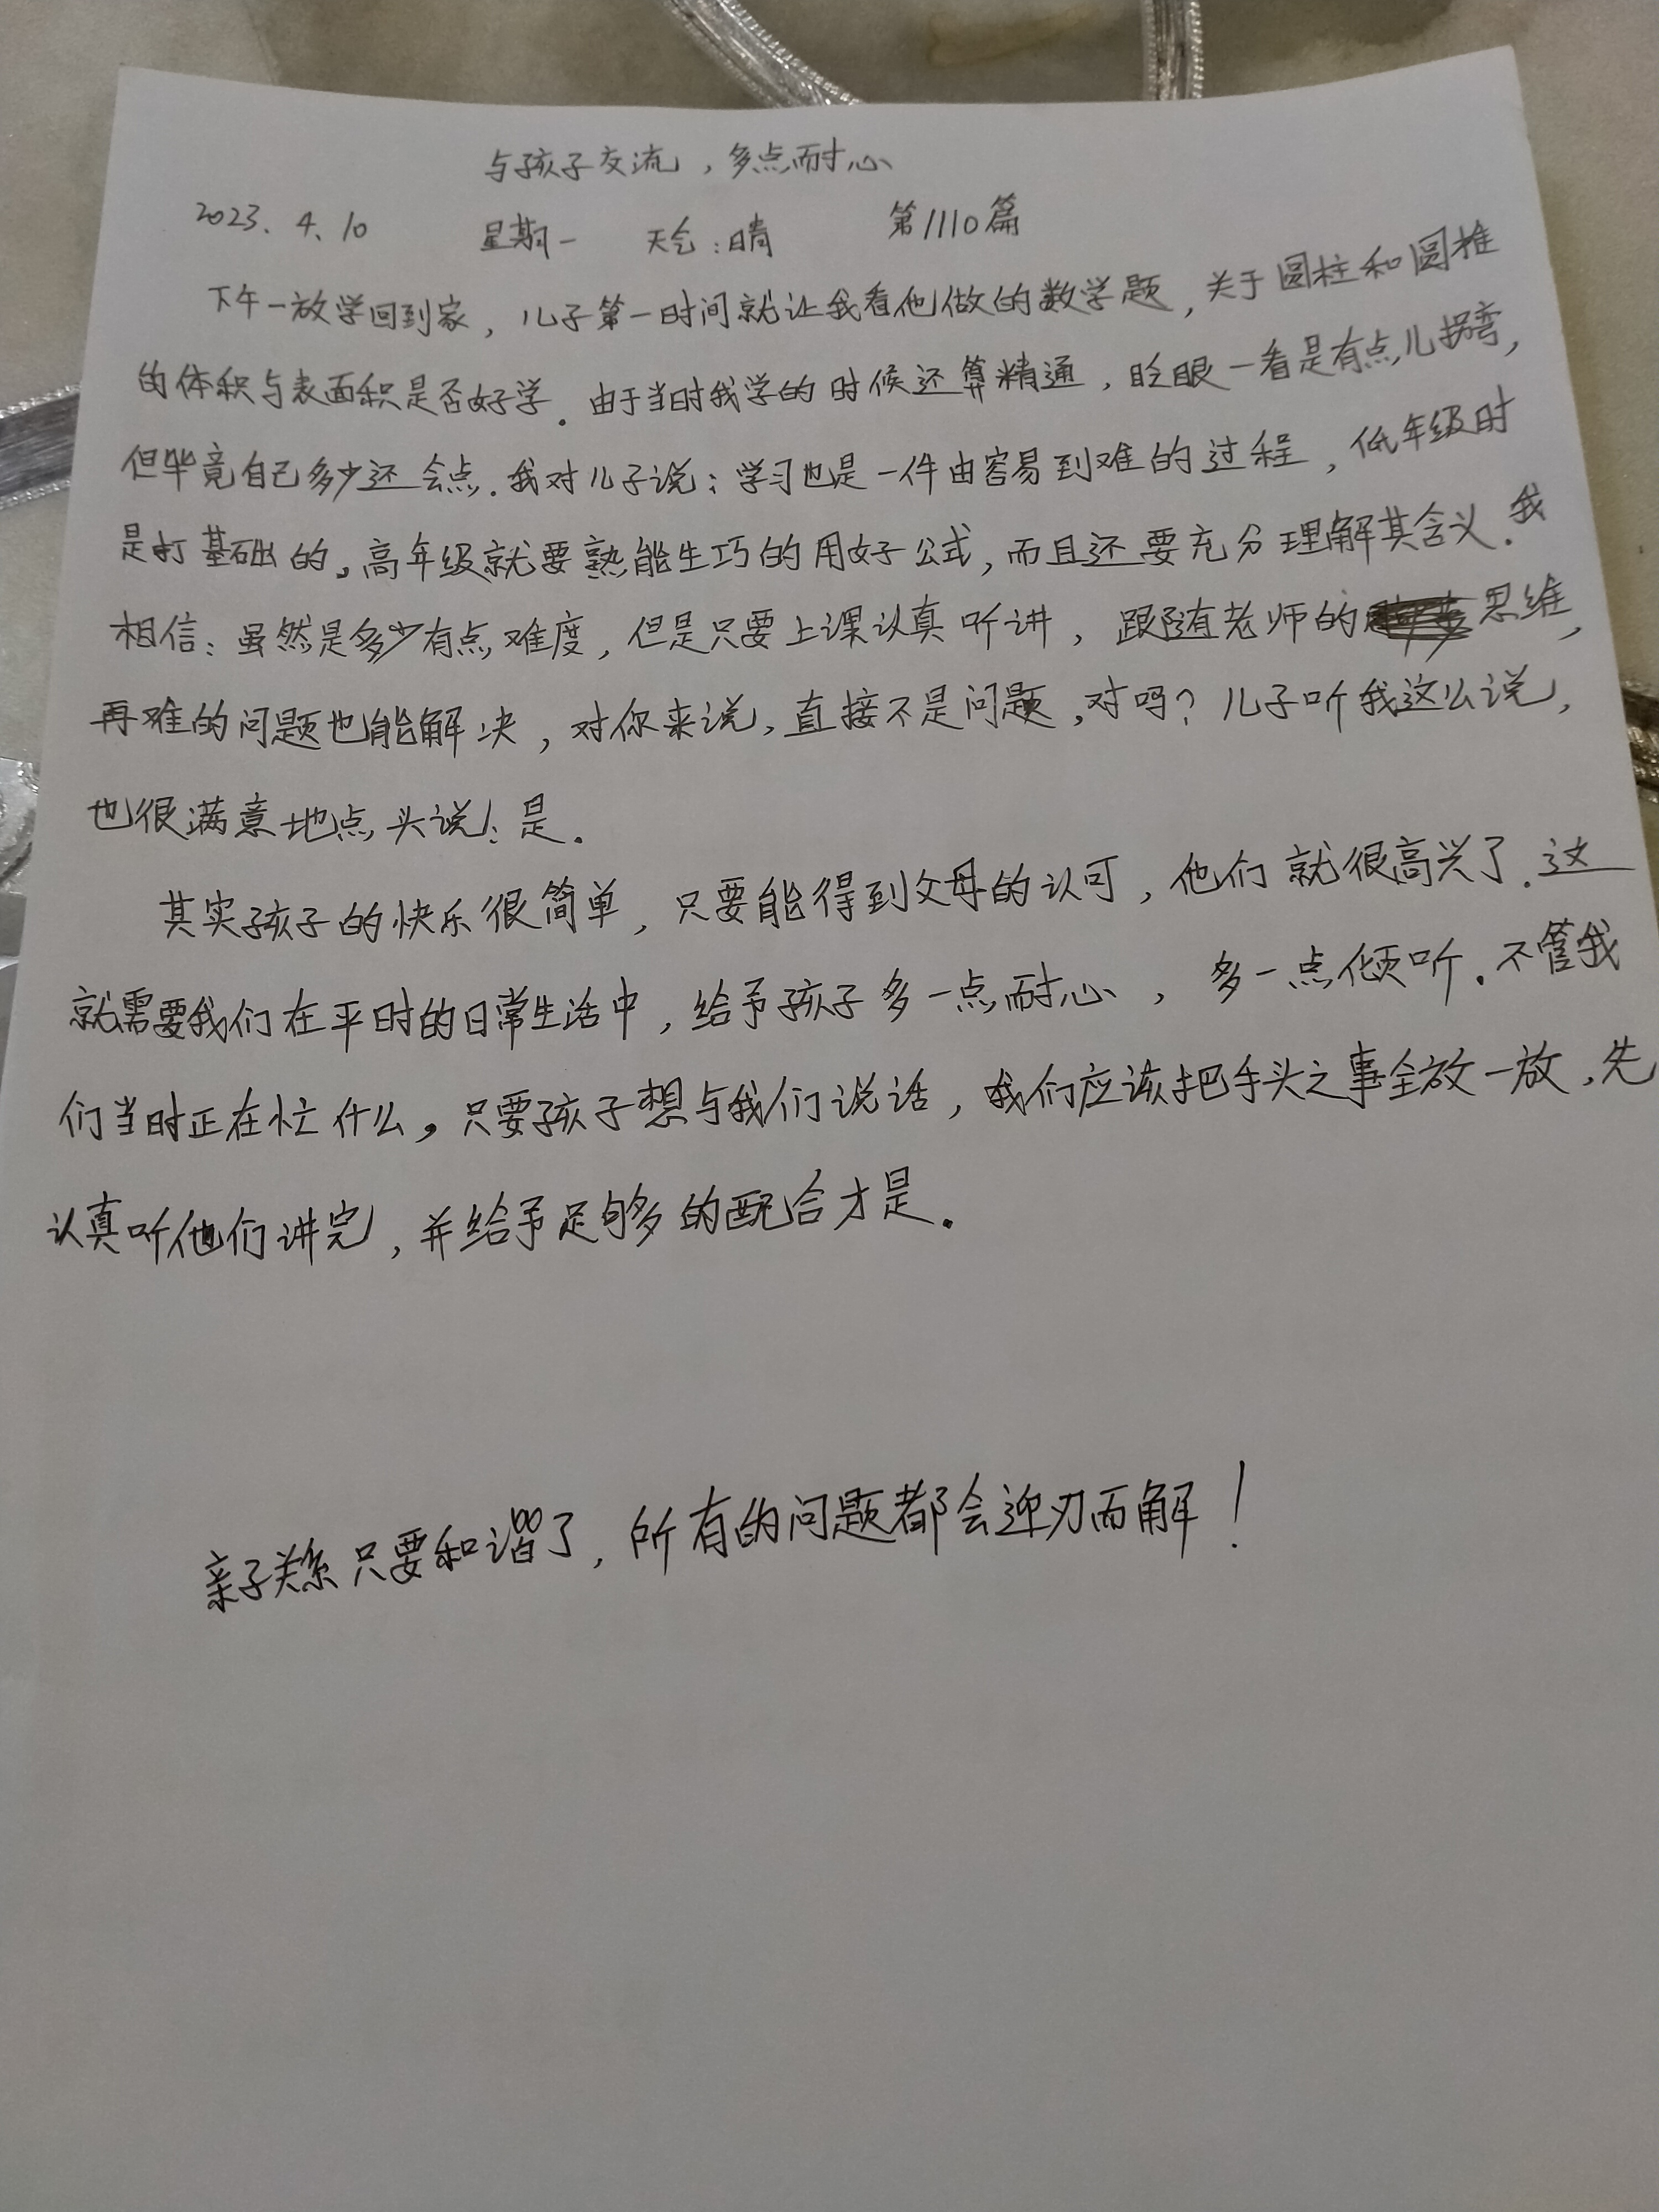 与孩子交流，多点耐心
2023、4、10 星期一 天气：晴 第1110篇
下午一放学回到家，儿子第一时间就让我看他做的数学题，关于圆柱和圆椎
的体积与表面积是否好学。由于当时我学的时候还算精通，眨眼一看是有点儿拐弯，
但毕竟自己多少还会点。我对儿子说：学习也是一件由容易到难的过程，低年级时
是打基础的。高年级就要熟能生巧的用好公式，而且还要充分理解其含义。我
相信：虽然是多少有点难度，但是只要上课认真听讲，跟随老师的思维，
再难的问题也能解决，对你来说，直接不是问题，对吗？儿子听我这么说，
也很满意地点头说：是。
其实孩子的快乐很简单，只要能得到父母的认可，他们就很高兴了。这
就需要我们在平时的日常生活中，给予孩子多一点耐心，多一点倾听。不管我
们当时正在忙什么，只要孩子想与我们说话，我们应该把手头之事全放一放，先
认真听他们讲完，并给予足够多的配合才是。
亲子关系只要和谐了，所有的问题都会迎刃而解！